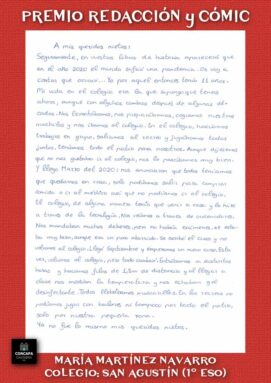 PREMIO REDACCIÓN y CÓMIC
A mis queridos nietos:
Seguramente, en vuestros libros de historia aparecerá que
en el año 2020 el mundo sufrió una pandemia. Os voy a
contar que ocurrió... Yo por aquel entonces tenía 11 años.
Mi vida en el colegio era la que supongo que tenéis
ahora, aunque con algunos cambios después de algunas dé-
cadas. Nos levantábamos, nos preparábamos, cogíamos nuestra
mochila y nos íbamos al colegio. En el colegio, hacíamos
trabajos en grupo, salíamos al recreo y jugábamos todos
juntos, teníamos todo el patio para nosotros. Aunque dijéramos
que no nos gustaba ir al colegio, nos lo pasábamos muy bien.
Y llegó Marzo del 2020: nos anunciaron que todos teníamos
que quedarnos en casa, solo podíamos salir para comprar
comida o ir al médico así que no podíamos ir al colegio.
El colegio, de alguna manera tenía que venir a casa y lo hizo
a través de la tecnología. Nos veíamos a través de ordenadores.
Nos mandaban muchos deberes, pero no había exámenes, se esta-
ba muy bien, aunque era un poco aburrido. Se acabó el curso y no
volvimos al colegio. Llegó Septiembre y empezamos un nuevo curso. Esta
vez, volvimos al colegio, ¡pero todo cambió! Entrábamos a distintas
horas y hacíamos filas de 1,5m de distancia y al llegar a
clase nos medían la temperatura y nos echaban gel
desinfectante. Todos llevábamos mascarillas. En los recreos no
podíamos jugar con balones ni tampoco por todo el patio,
solo por nuestra pequeña zona.
Ya no fue lo mismo mis queridos nietos.
CONCAPA
MARÍA MARTÍNEZ NAVARRO
COLEGIO: SAN AGUSTÍN (1º ESO)